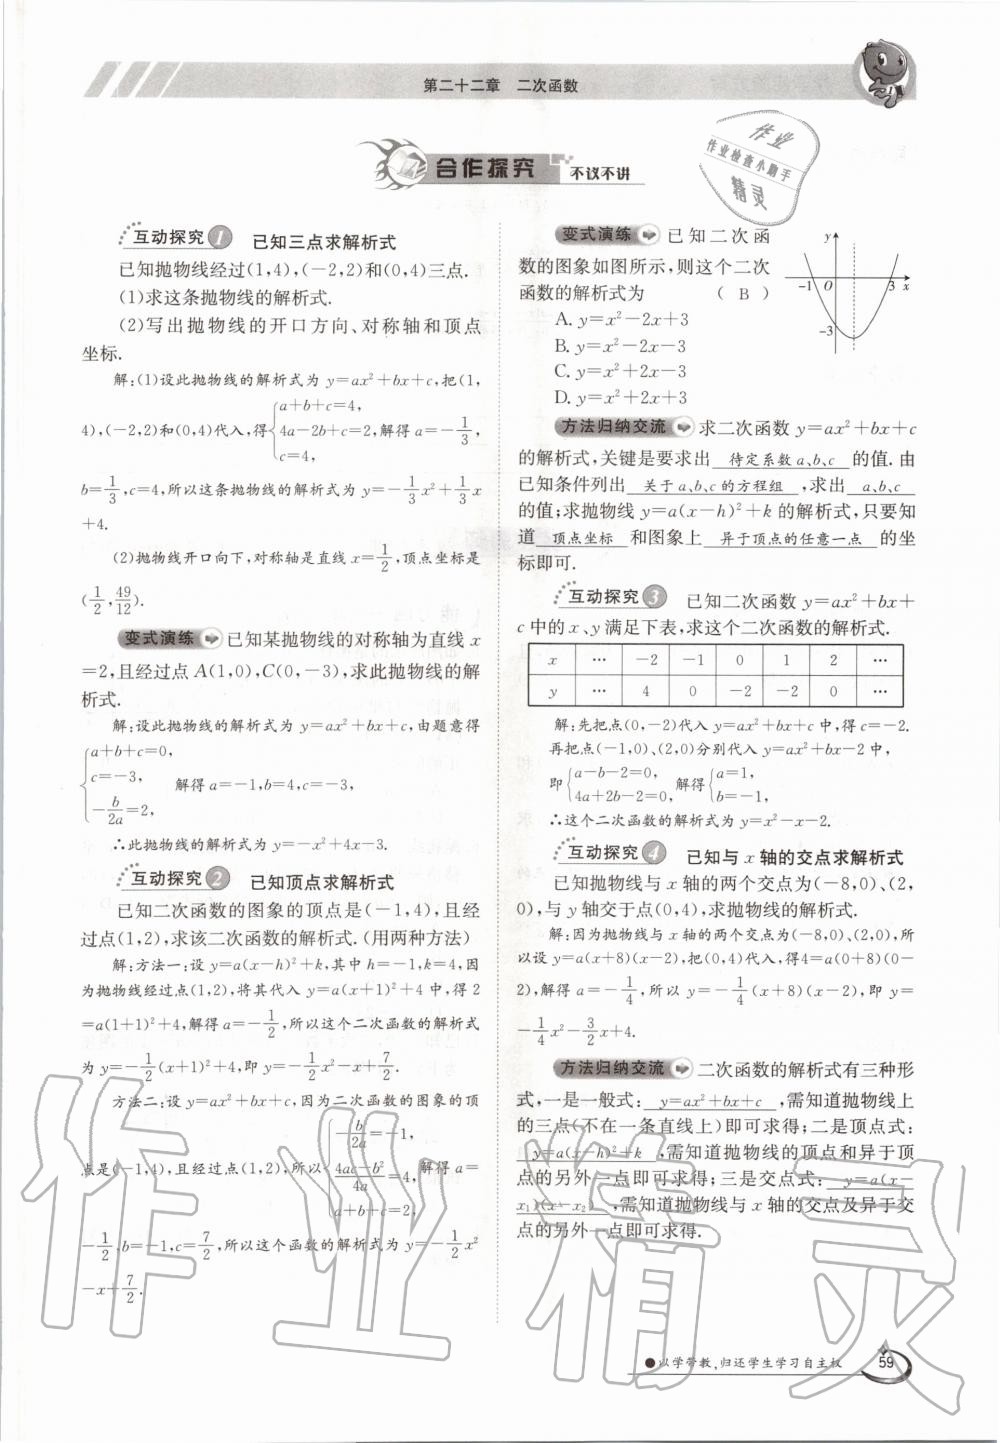 第二十二章 二次函数
作业
作业检查小助手
精灵
合作探究 不议不讲
互动探究1 已知三点求解析式
已知抛物线经过(1,4),(-2,2)和(0,4)三点.
(1)求这条抛物线的解析式.
(2)写出抛物线的开口方向、对称轴和顶点
坐标.
解:(1)设此抛物线的解析式为 y=ax²+bx+c,把(1,
4),(-2,2)和(0,4)代入,得{a+b+c=4, 4a-2b+c=2, c=4, 解得 a=-1/3,
b=1/3,c=4,所以这条抛物线的解析式为 y=-1/3x²+1/3x
+4.
(2)抛物线开口向下,对称轴是直线 x=1/2,顶点坐标是
(1/2,49/12).
变式演练 已知某抛物线的对称轴为直线 x
=2,且经过点 A(1,0),C(0,-3),求此抛物线的解
析式.
解:设此抛物线的解析式为 y=ax²+bx+c,由题意得
{a+b+c=0, c=-3, -b/2a=2, 解得 a=-1,b=4,c=-3,
∴此抛物线的解析式为 y=-x²+4x-3.
互动探究2 已知顶点求解析式
已知二次函数的图象的顶点是(-1,4),且经
过点(1,2),求该二次函数的解析式.(用两种方法)
解:方法一:设 y=a(x-h)²+k,其中 h=-1,k=4,因
为抛物线经过点(1,2),将其代入 y=a(x+1)²+4 中,得 2
=a(1+1)²+4,解得 a=-1/2,所以这个二次函数的解析式
为 y=-1/2(x+1)²+4,即 y=-1/2x²-x+7/2.
方法二:设 y=ax²+bx+c,因为二次函数的图象的顶
点是(-1,4),且经过点(1,2),所以{-b/2a=-1, 4ac-b²/4a=4, a+b+c=2, 解得 a=
-1/2,b=-1,c=7/2,所以这个函数的解析式为 y=-1/2x²
-x+7/2.
变式演练 已知二次函
数的图象如图所示,则这个二次
函数的解析式为 ( B )
y
-1 O 3 x
-3
A. y=x²-2x+3
B. y=x²-2x-3
C. y=x²+2x-3
D. y=x²+2x+3
方法归纳交流 求二次函数 y=ax²+bx+c
的解析式,关键是要求出 待定系数 a、b、c 的值.由
已知条件列出 关于 a、b、c 的方程组 ,求出 a、b、c
的值;求抛物线 y=a(x-h)²+k 的解析式,只要知
道 顶点坐标 和图象上 异于顶点的任意一点 的坐
标即可.
互动探究3 已知二次函数 y=ax²+bx+
c 中的 x、y 满足下表,求这个二次函数的解析式.
x … -2 -1 0 1 2 …
y … 4 0 -2 -2 0 …
解:先把点(0,-2)代入 y=ax²+bx+c 中,得 c=-2.
再把点(-1,0)、(2,0)分别代入 y=ax²+bx-2 中,
即{a-b-2=0, 4a+2b-2=0, 解得{a=1, b=-1,
∴这个二次函数的解析式为 y=x²-x-2.
互动探究4 已知与 x 轴的交点求解析式
已知抛物线与 x 轴的两个交点为(-8,0)、(2,
0),与 y 轴交于点(0,4),求抛物线的解析式.
解:因为抛物线与 x 轴的两个交点为(-8,0)、(2,0),所
以设 y=a(x+8)(x-2),把(0,4)代入,得4=a(0+8)(0-
2),解得 a=-1/4,所以 y=-1/4(x+8)(x-2),即 y=
-1/4x²-3/2x+4.
方法归纳交流 二次函数的解析式有三种形
式,一是一般式: y=ax²+bx+c ,需知道抛物线上
的三点(不在一条直线上)即可求得;二是顶点式:
y=a(x-h)²+k ,需知道抛物线的顶点和异于顶
点的另外一点即可求得;三是交点式: y=a(x-
x₁)(x-x₂) ,需知道抛物线与 x 轴的交点及异于交
点的另外一点即可求得.
作业精灵
●以学带教,归还学生学习自主权 59